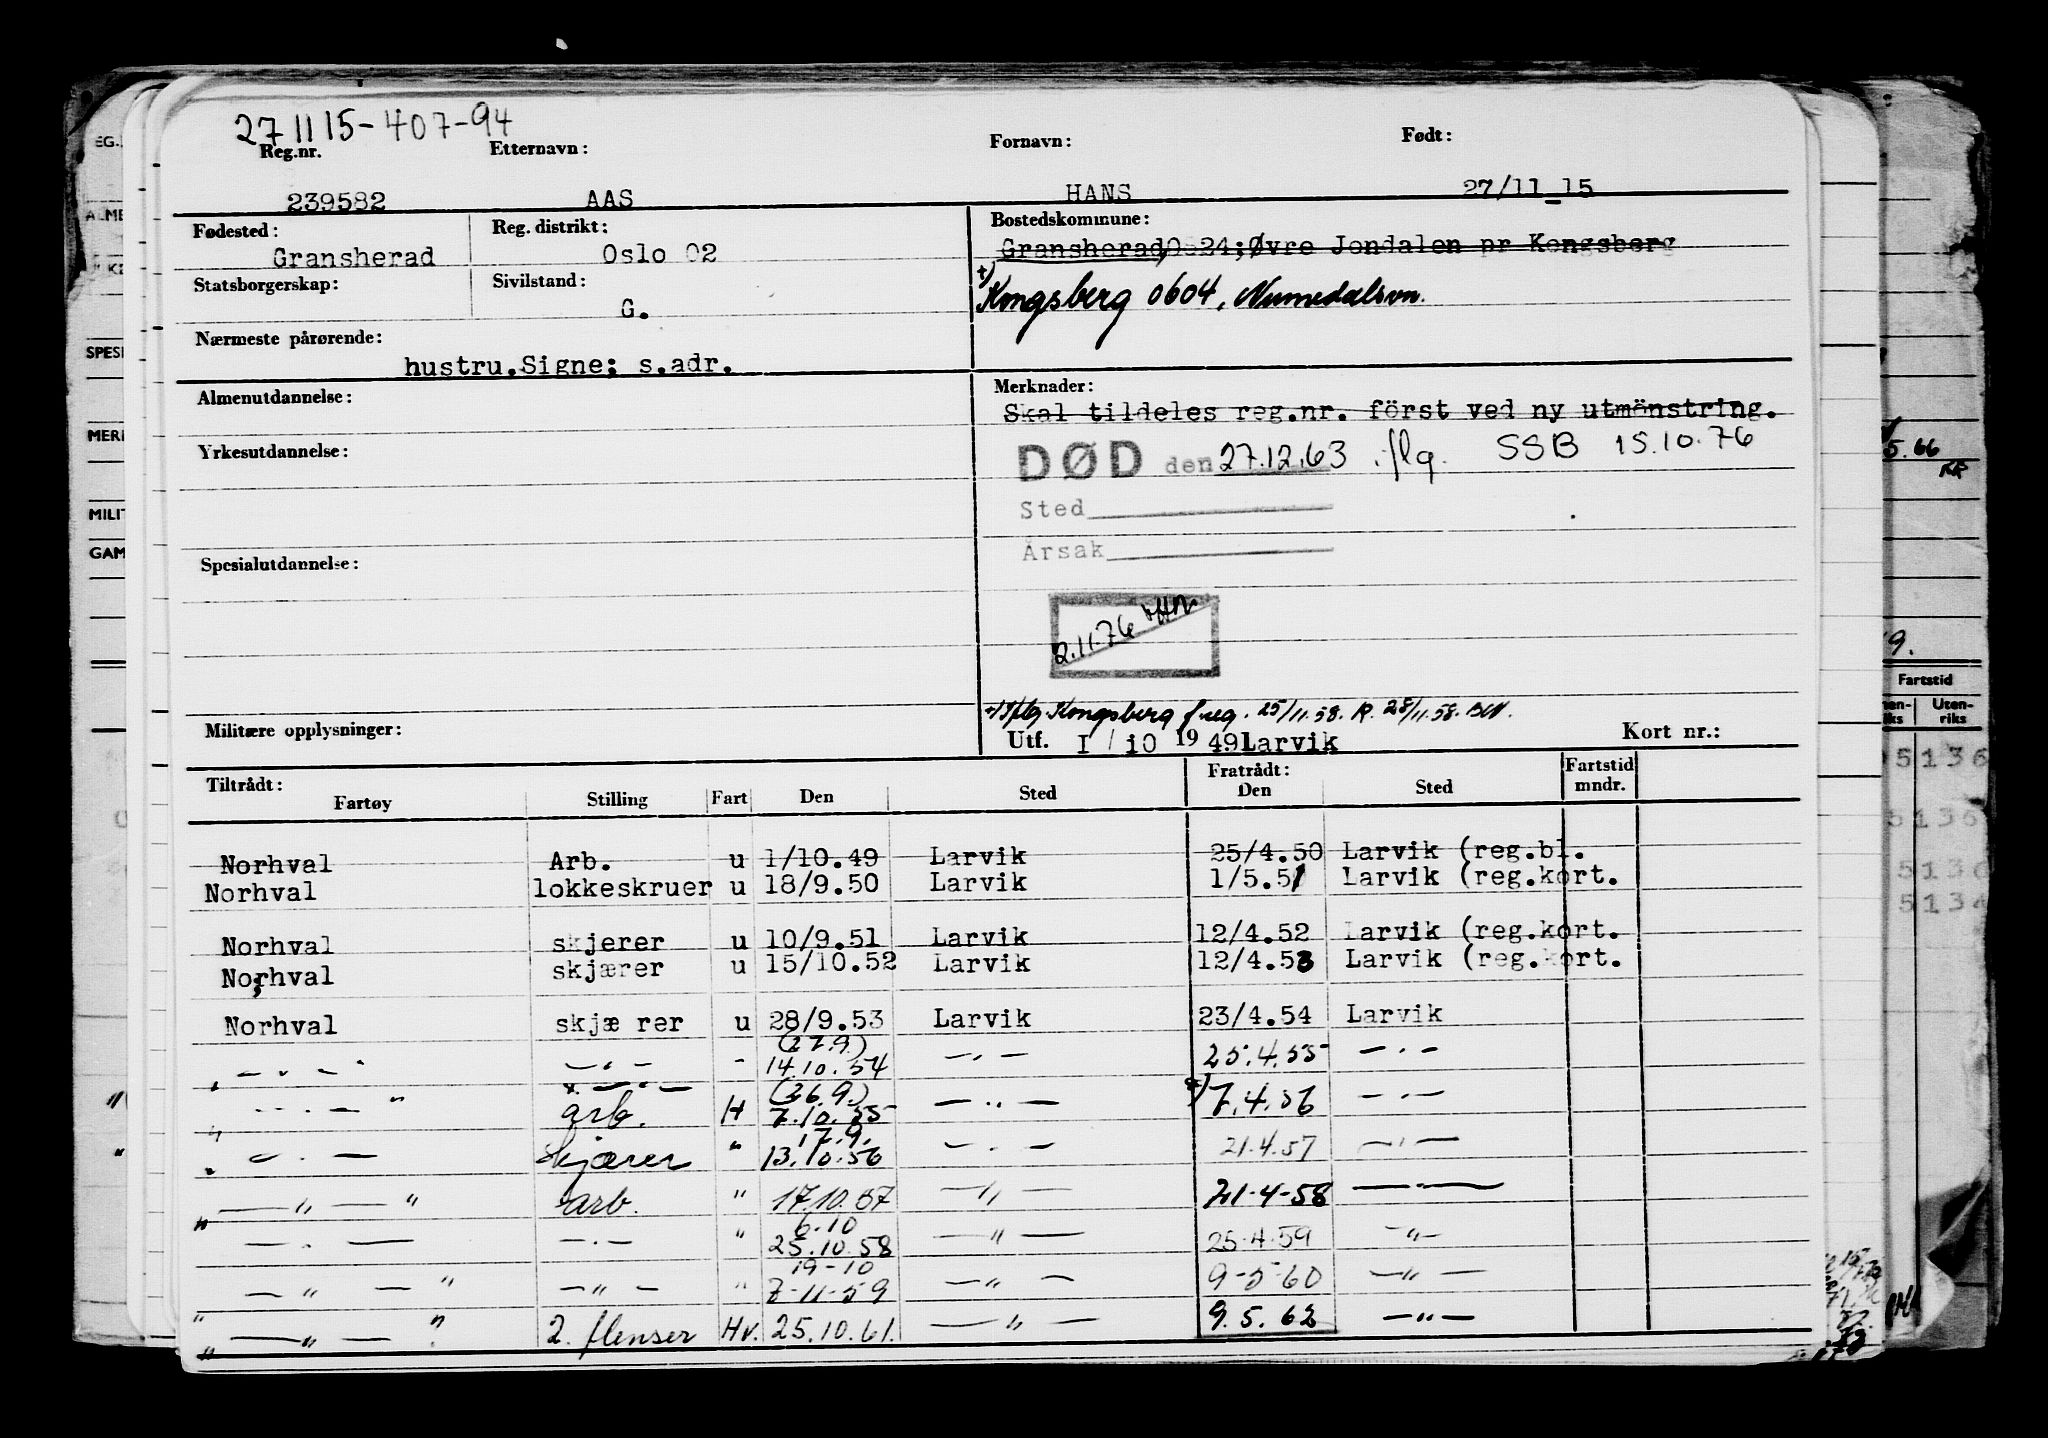 27 11 15-407-94
Reg.nr. Etternavn: Fornavn: Født:
239582 AAS HANS 27/11_15
Fødested: Reg. distrikt: Bostedskommune:
Gransherad Oslo 02 Gransherad,0824;Øvre Jondalen pr Kongsberg
Statsborgerskap: Sivilstand:
G. +) Kongsberg 0604, Numedalsvn.
Nærmeste pårørende:
hustru.Signe; s.adr.
Almenutdannelse: Merknader:
Skal tildeles reg.nr. först ved ny utmönstring.
Yrkesutdannelse: DØD den 27.12.63 iflg. SSB 15.10.76
Sted
Årsak
Spesialutdannelse:
2.11.76
+) Iflg. Kongsberg f.reg. 25/11.58. R. 28/11.58.
Militære opplysninger: Utf. I / 10 19 49 Larvik Kort nr.:
Tiltrådt: Fratrådt: Fartstid
Fartøy Stilling Fart Den Sted Den Sted mndr.
Norhval Arb. u 1/10.49 Larvik 25/4.50 Larvik (reg.bl.
Norhval lokkeskruer u 18/9.50 Larvik 1/5.51 Larvik (reg.kort.
Norhval skjerer u 10/9.51 Larvik 12/4.52 Larvik (reg.kort.
Norhval skjærer u 15/10.52 Larvik 12/4.53 Larvik (reg.kort.
Norhval skjæ rer u 28/9.53 Larvik 23/4.54 Larvik
(27.9)
— " — — " — - 14.10.54 — " — 25.4.55 — " —
x. — " — (26.9.)
— " — arb. H 7.10.55 — " — x) 7.4.56 — " —
17.9.
— " — skjærer " 13.10.56 — " — 21.4.57 — " —
— " — arb. " 17.10.57 — " — 21-4-58 — " —
6.10
— " — — " — " 25.10.58 — " — 25.4.59 — " —
19-10
— " — — " — " 7-11-59 — " — 9-5-60 — " —
— " — 2. flenser Hv. 25.10.61. — " — 9.5.62 — " —
EG.
ALME
SPESI
MERI
MILIT
GAM
5.66
KR
9.
Fartstid
Uten-
riks
5136
5136
5136
5134